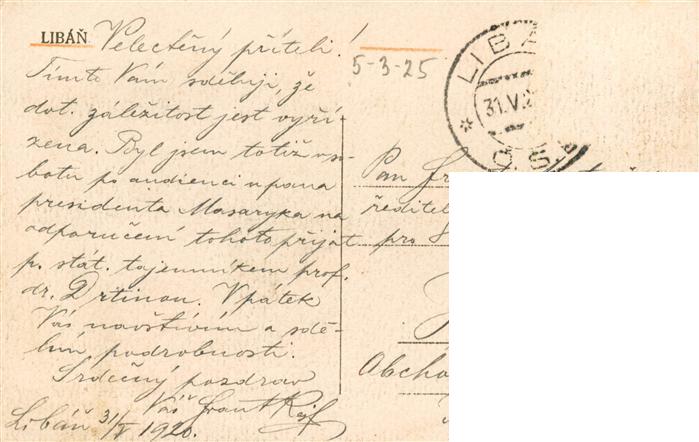 LIBÁŇ
Velectěný příteli!
Tímto Vám sděluji, že
dot. záležitost jest vyří-
zena. Byl jsem totiž v so-
botu po audienci u pana
presidenta Masaryka na
odporučení tohoto přijat
p. stát. tajemníkem prof.
dr. Drtinou. V pátek
Vás navštívím a sdě-
lím podrobnosti.
Srdečný pozdrav
Váš Frant.
Libáň 31/V 1920.
5-3-25
LIBÁ
31.V.2
Č.S.
Pan
ředitel
pro
Obcho